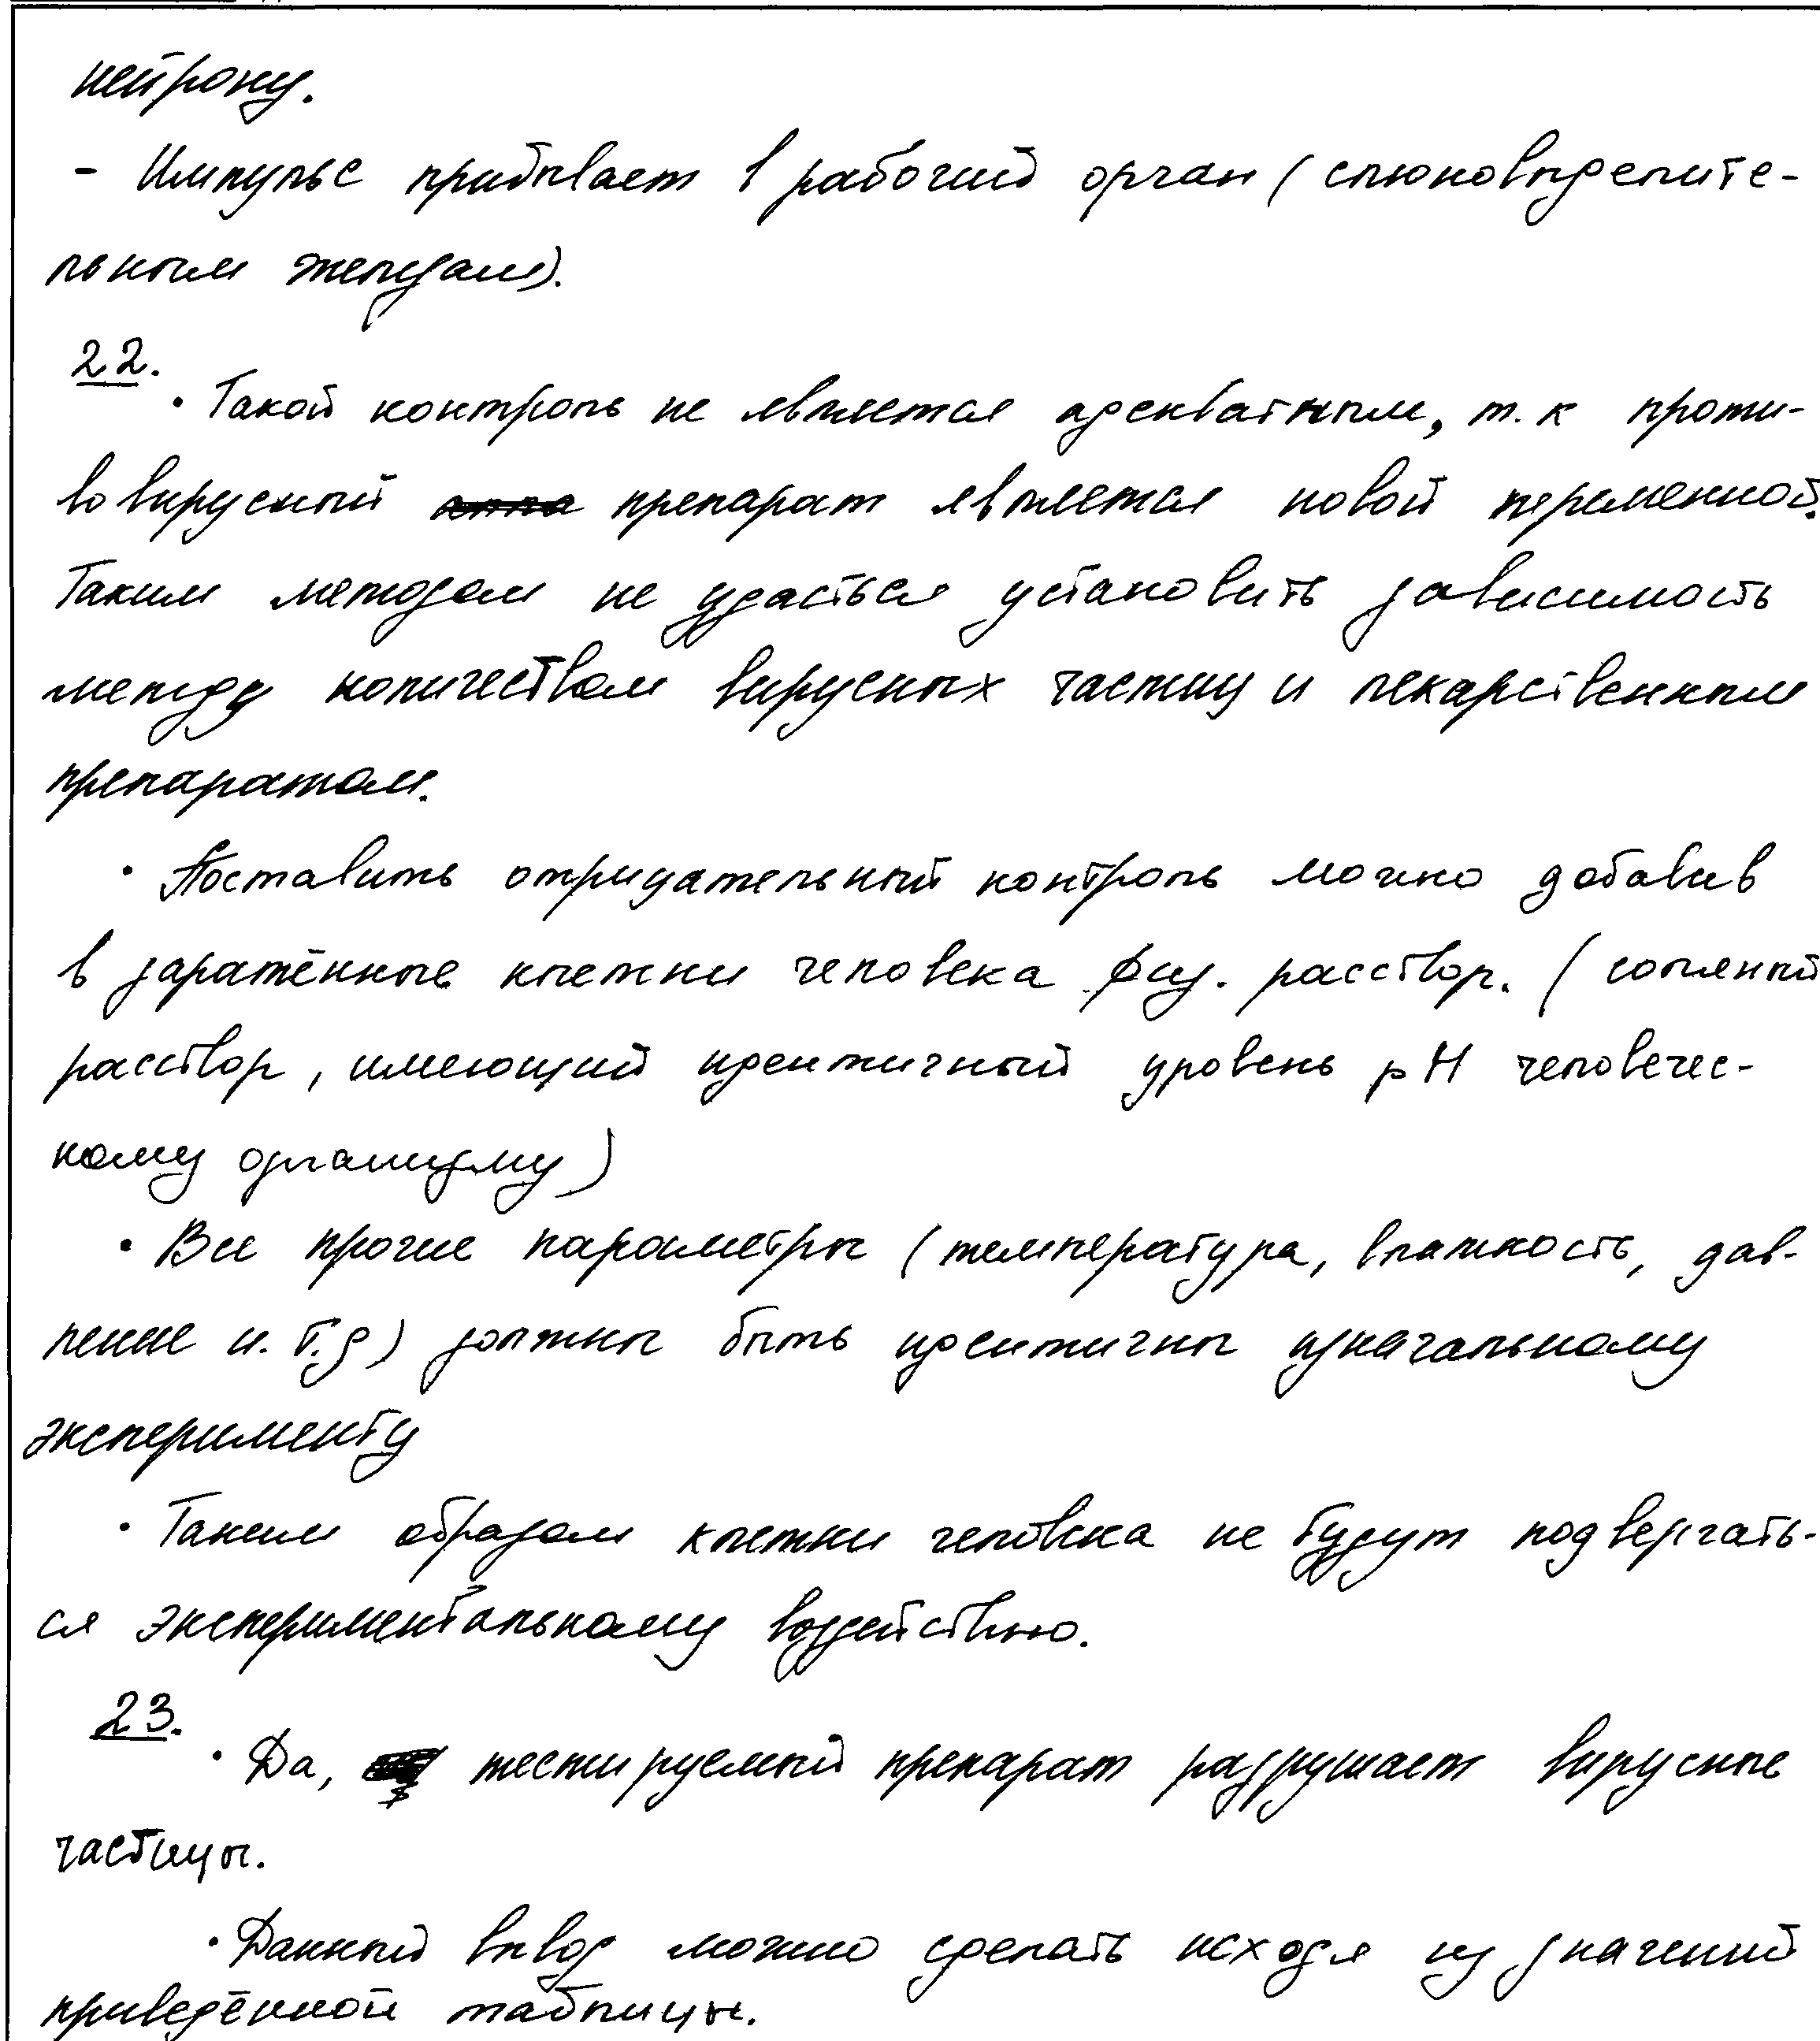 нейрону.
- Импульс прибывает в рабочий орган (слюновыделите-
льным железам).
22.
• Такой контроль не является адекватным, т.к проти-
вовирусный препарат является новой переменной.
Таким методом не удасться установить зависимость
между количеством вирусных частиц и лекарственным
препаратом.
• Поставить отрицательный контроль можно добавив
в заражённые клетки человека физ. расствор. (солёный
расствор, имеющий идентичный уровень pH человечес-
кому организму)
• Все прочие параметры (температура, влажность, дав-
ление и. т.д) должны быть идентичны изначальному
эксперименту
• Таким образом клетки человека не будут подвергать-
ся экспериментальному воздействию.
23.
• Да, тестируемый препарат разрушает вирусные
частицы.
• Данный вывод можно сделать исходя из значений
приведённой таблицы.